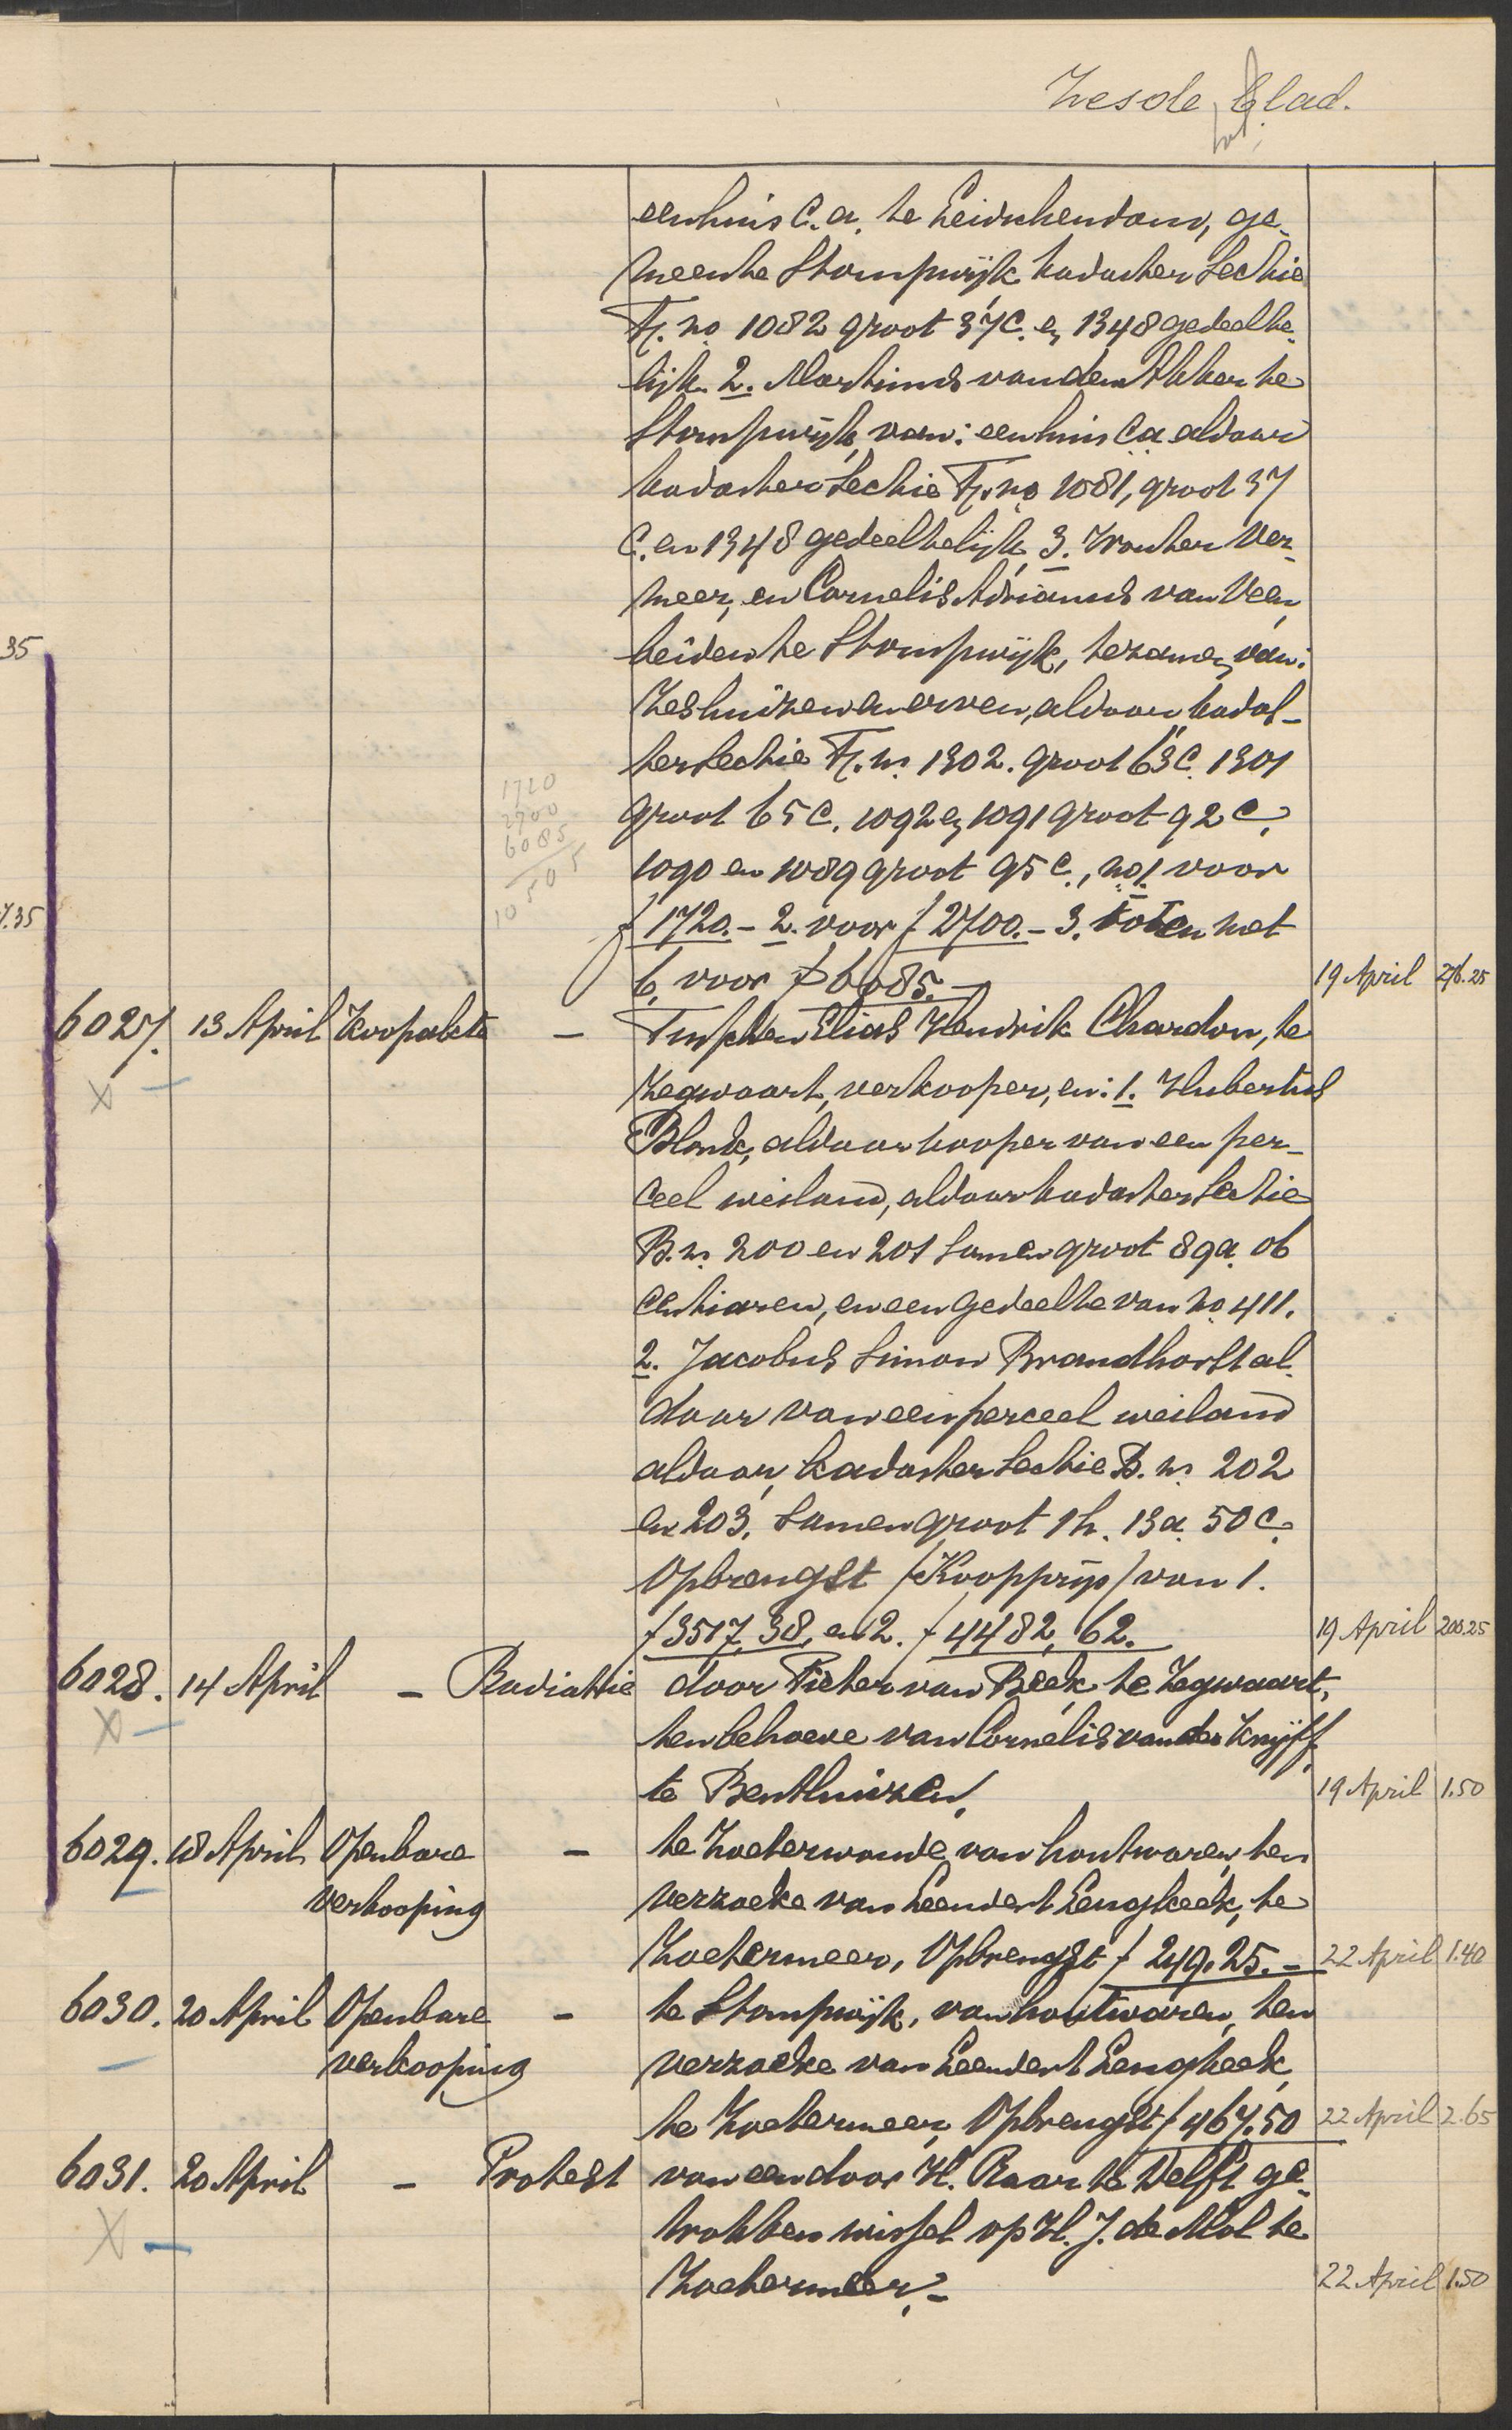 Zesde blad.
een huis C.a. te Leidschendam, ge-
meente Stompwijk kadaster Sectie
F. no 1082 groot 37 C. en 1348 gedeelte-
lijk. 2. Martinus van den Akker te
Stompwijk, van: een huis C.a. aldaar
kadaster Sectie F. no 1081, groot 37
C. en 1348 gedeeltelijk, 3. Wouter Ver-
meer, en Cornelis Adrianus van Veen
beiden te Stompwijk, tezamen van:
35
Zes huizen en erven, aldaar, kadas-
ter Sectie F. no. 1302. groot 63 C. 1301
1720
groot 65 C. 1092 en 1091 groot 92 C.
2700
6085
1090 en 1089 groot 95 C., no 1. voor
10505
7.35
f 1720.- 2. voor f 2700.- 3. tot en met
6. voor f 6085.- 19 April 276.25
6027. 13 April Koopakte - Tusschen Elias Hendrik Chardon, te
X Zegwaart, verkooper, en: 1. Hubertus
Blonk, aldaar kooper van een per-
ceel weiland, aldaar kadaster Sectie
B. no. 200 en 201 samen groot 89 a. 06
centiaren, en een gedeelte van no 411.
2. Jacobus Simon Brandhorst al-
daar van een perceel weiland
aldaar, kadaster Sectie B. no. 202
en 203, samen groot 1 h. 13 a. 50 C.
Opbrengst (Koopprijs) van 1.
f 3517,38, en 2. f 4482,62. 19 April 200.25
6028. 14 April - Radiatie door Pieter van Beek te Zegwaart,
X ten behoeve van Cornelis van der Knijff,
te Benthuizen, 19 April 1.50
6029. 18 April Openbare - te Zoeterwoude, van houtwaren, ten
verkooping verzoeke van Leendert Langbeek, te
Zoetermeer, Opbrengst f 249.25.- 22 April 1.40
6030. 20 April Openbare - te Stompwijk, van houtwaren, ten
verkooping verzoeke van Leendert Langbeek,
te Zoetermeer, Opbrengst f 467.50 22 April 2.65
6031. 20 April - Protest van een door H. Raar te Delft ge-
X trokken wissel op H. J. de Mol te
Zoetermeer.- 22 April 1.50